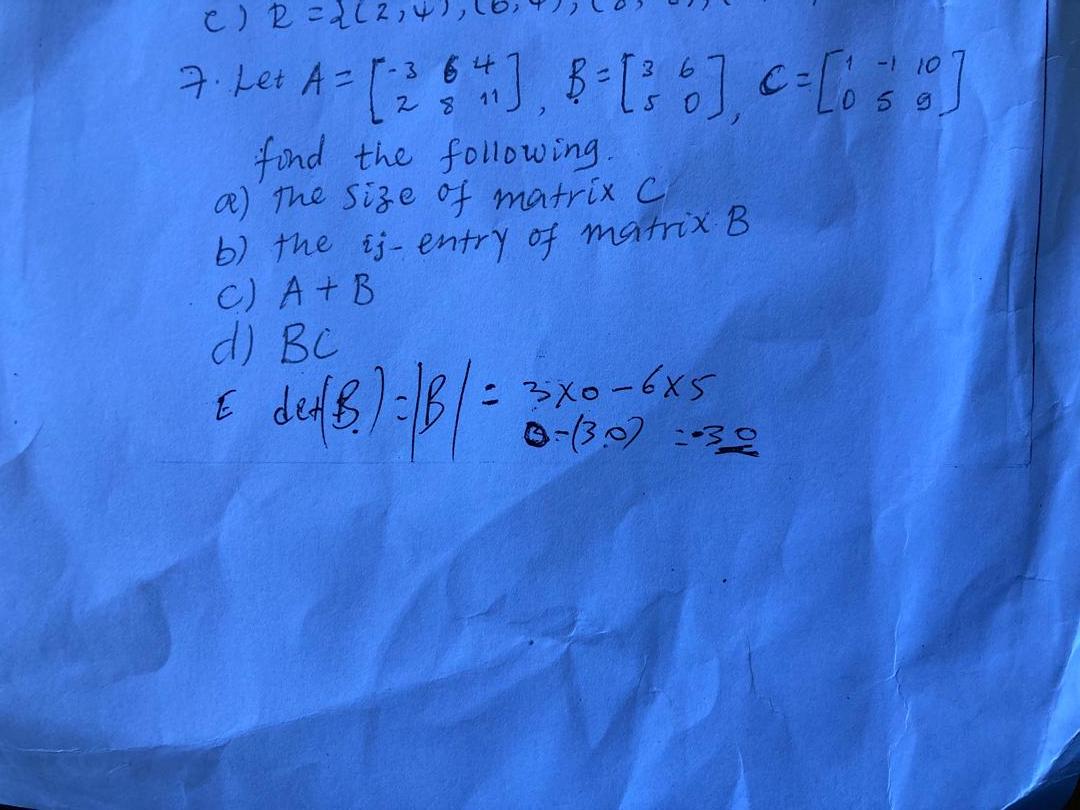 c) R = {(2,4), (6,4), (8,
7. Let A = [-3 6 4 , B = [3 6 , C = [1 -1 10
2 8 11] 5 0], 0 5 9]
find the following.
a) The size of matrix C
b) the ij-entry of matrix B
c) A + B
d) BC
E det(B) = |B| = 3x0 - 6x5
0 - (30) = -30